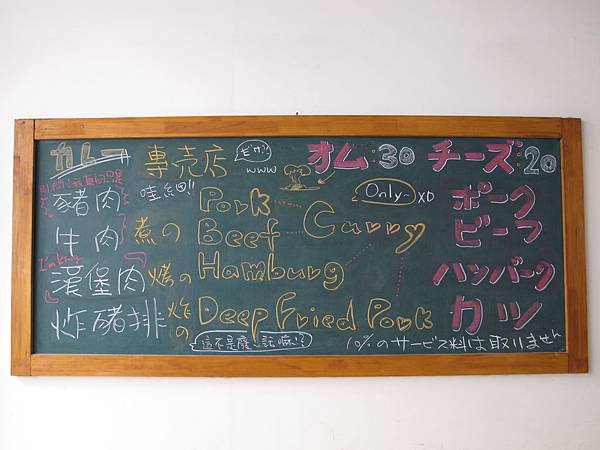 カレー 専売店 ピザ!! www オム:30 チーズ:20
豬肉 哇細!! Pork Only~ XD ポーク
牛肉 煮の Beef Curry ビーフ
I'm king
漢堡肉 烤の Hamburg ハンバーク
炸豬排 炸の Deep Fried Pork カツ
這不是廢話嘛!? 10%のサービス料は取りません